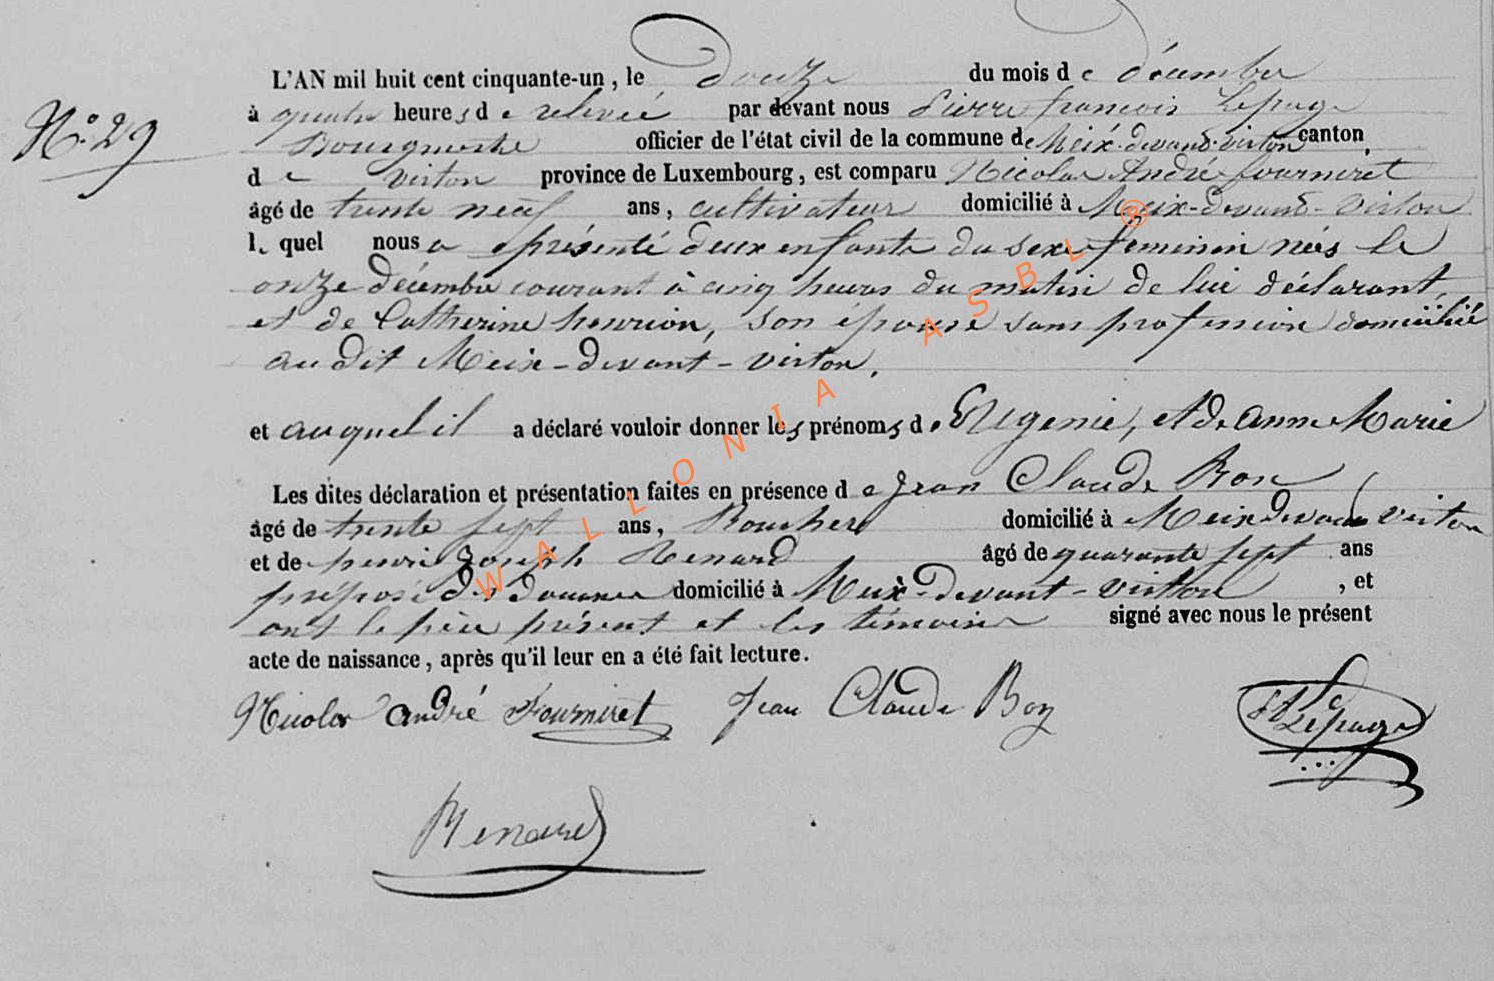 L'AN mil huit cent cinquante-un, le douze du mois de décembre
N° 29
à quatre heures de relevée par devant nous Pierre françois Lepage
Bourgmestre officier de l'état civil de la commune de Meix-devant-virton canton,
de virton province de Luxembourg, est comparu Nicolas André fourniret
âgé de trente neuf ans, cultivateur domicilié à Meix-devant-virton
lequel nous a présenté deux enfants du sexe feminin nées le
onze décembre courant à cinq heures du matin de lui déclarant
et de Catherine henrion, son épouse sans profession domiciliée
au dit Meix-devant-virton.
et auquel il a déclaré vouloir donner les prénoms de Eugenie, et de anne Marie
Les dites déclaration et présentation faites en présence de Jean Claude Bon
âgé de trente sept ans, domicilié à Meix devant virton
et de henri Joseph Renard âgé de quarante sept ans
préposé des douanes domicilié à Meix-devant-virton, et
ont le père présent et les témoins signé avec nous le présent
acte de naissance, après qu'il leur en a été fait lecture.
Nicolas andré Fourniret Jean Claude Bon Lepage
Renard
WALLONIA ASBL ®